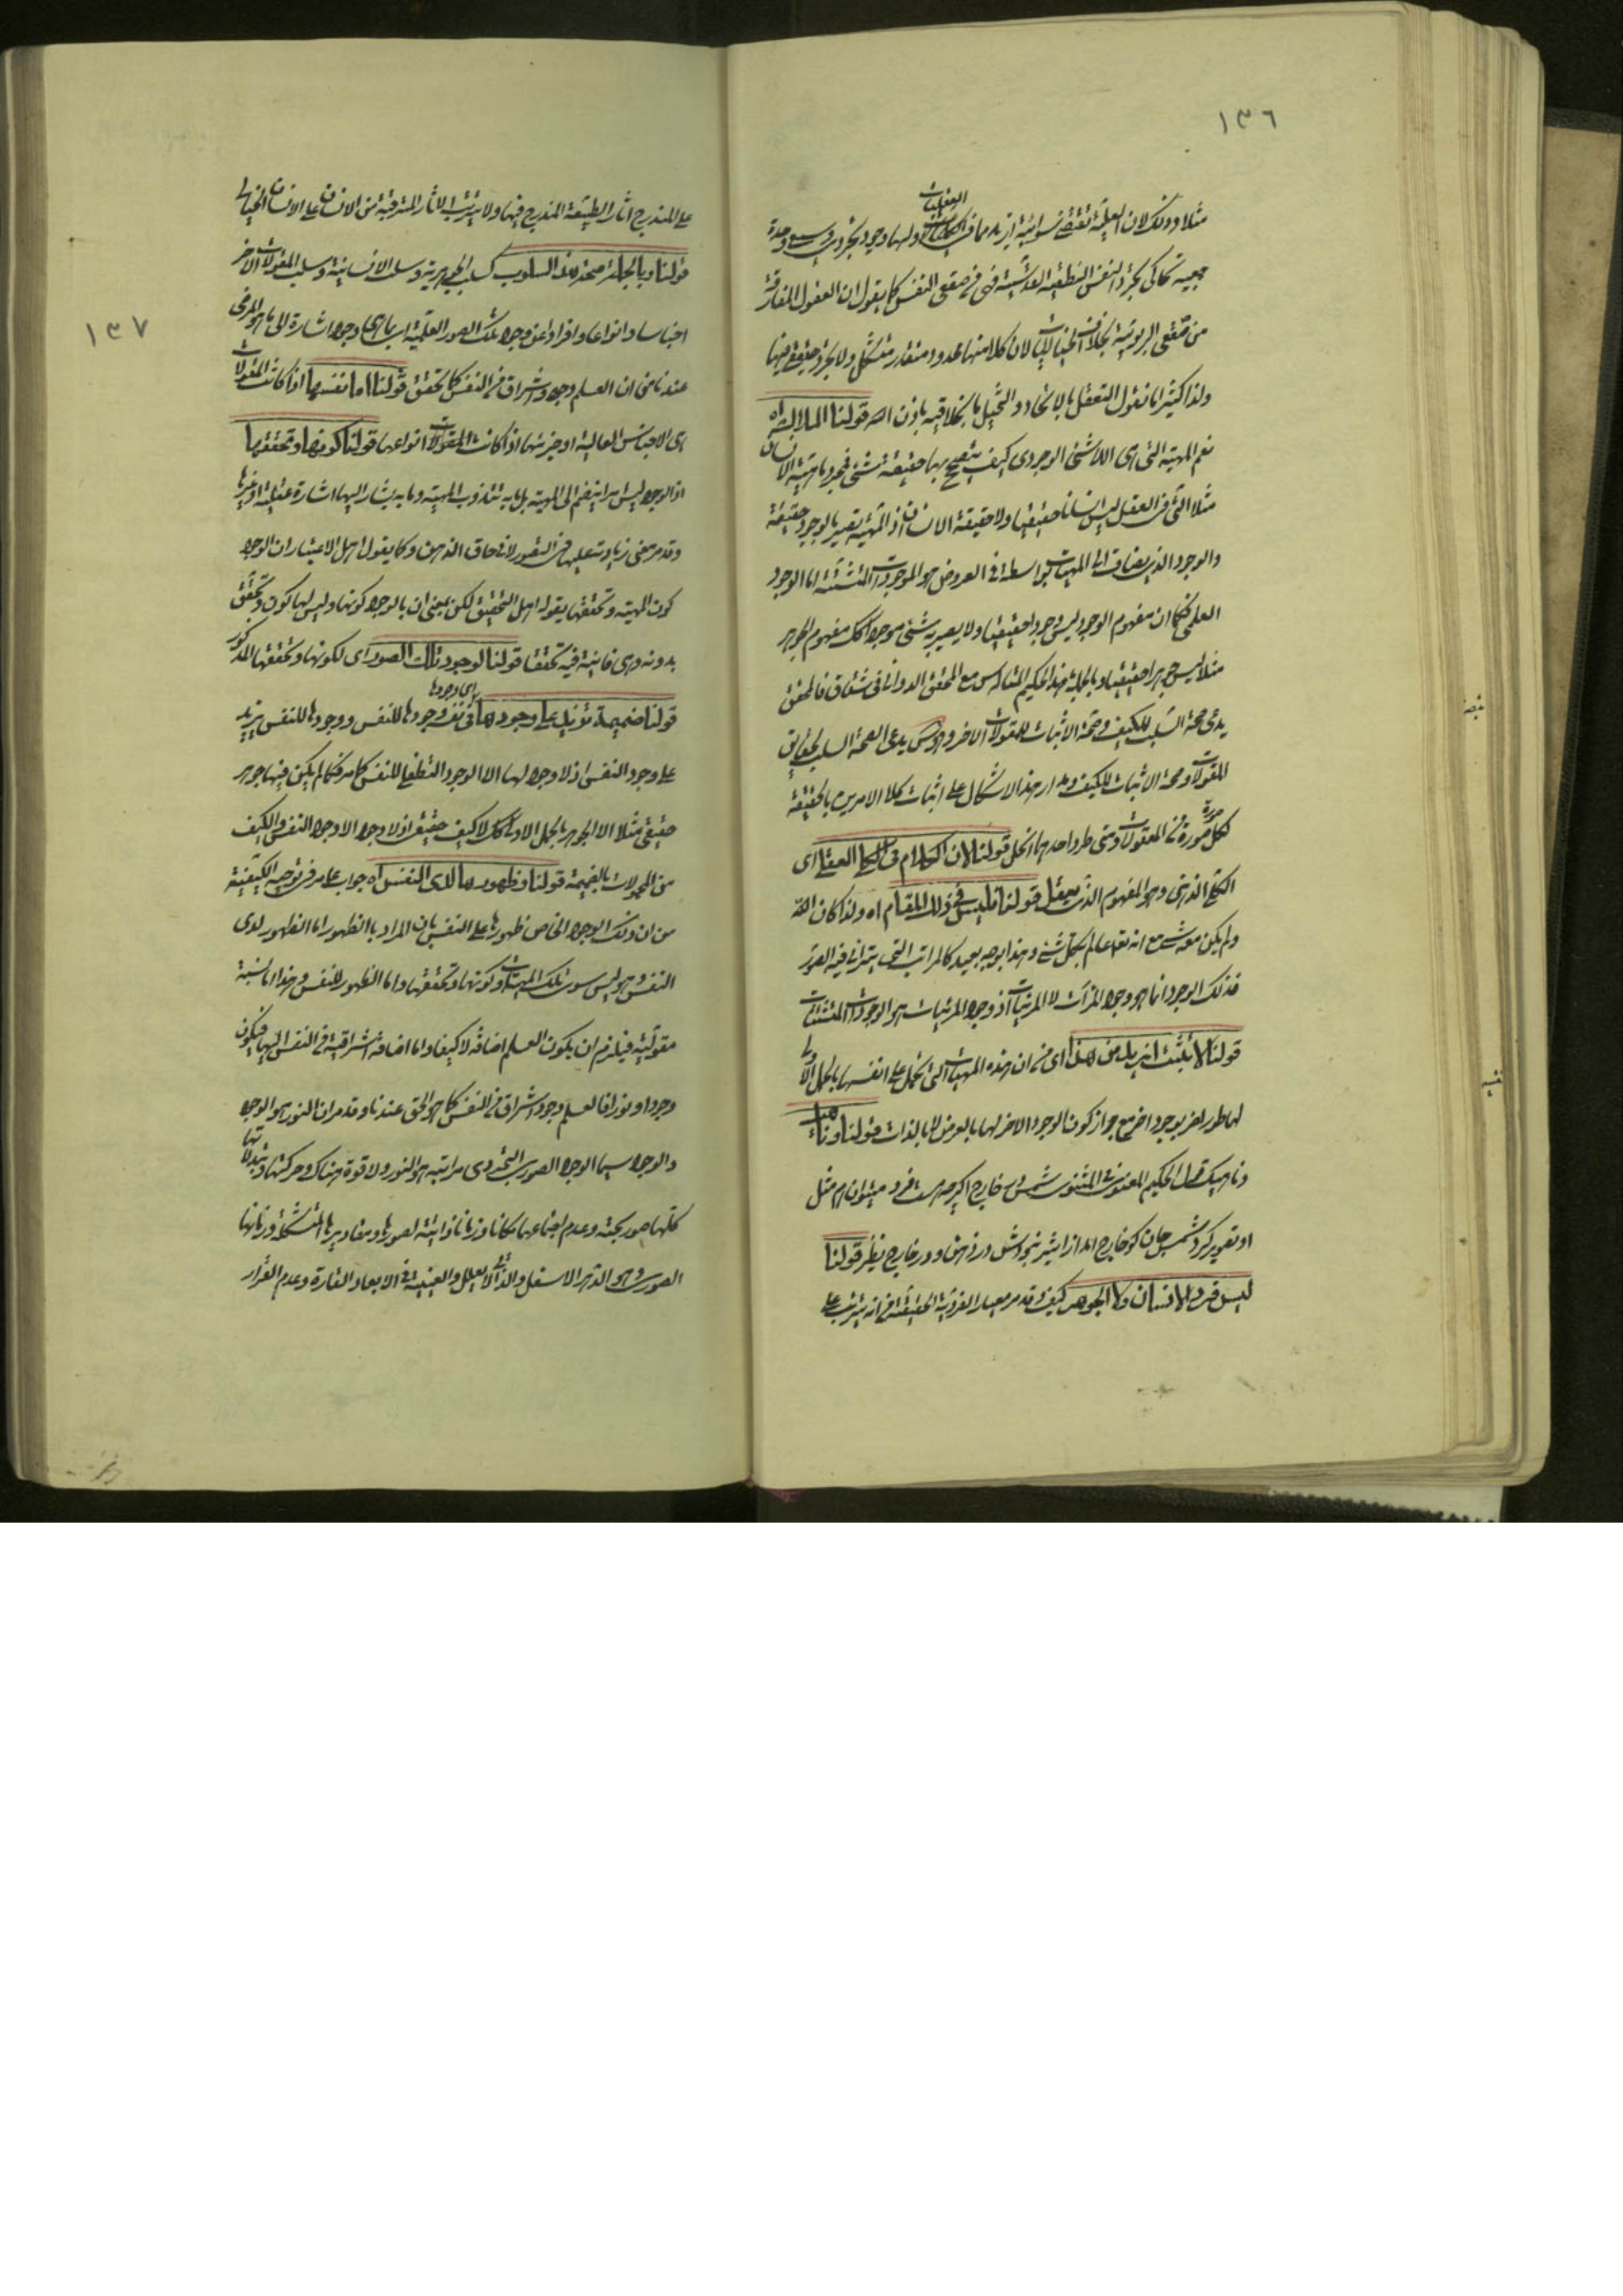 ١٣٦
مثلا وذلك لان العلية تقتضى سوائية ازيد مما فى العقليات ولها وجود تجردى وسيع وحدة
جمعية تحاكى تجرد النفس النطقية القدسية فهى فى صقع النفس كما يقول ان العقول المفارقة
من صقع الربوبية بخلاف الخياليات لان كلا منها محدود متقدر متشكل ولا تجرد حقيقى فيها
ولذا كثيرا ما نقول التعقل بالاتحاد والتخيل بالخلاقية باذن الله قولنا اه
نعم المهية التى هى اللاشئ الوجودى كيف يتصحح بها حقيقة شئ فمجرد مهية الانسان
مثلا التى فى العقل ليس انسانا حقيقيا ولا حقيقة الانسان اذ المهية تصير بالوجود حقيقة
والوجود الذى يضاف الى المهيات بواسطة فى العروض هو الموجودات المتشتتة اما الوجود
العلمى فكما ان مفهوم الوجود ليس وجودا حقيقيا ولا يصير به شئ موجودا كك مفهوم الجوهر
مثلا ليس جوهرا حقيقيا وبالجملة هذا الحكيم المتاله س مع المحقق الدوانى فى شقاق فالمحقق
يدعى صحة السلب للكيف وصحة الاثبات للمقولات الاخر وهو س يدعى صحة السلب لحقايق
المقولات وصحة الاثبات للكيف ومدار هذا الاشكال على اثبات كلا الامرين بالحقيقة
لكل صورة صورة من المعقولات ومتى طرد احديهما انحل قولنا لان الكلام فى الكلى العقلى اى
الكلى الذهنى وهو المفهوم الذى يعقل قولنا فليس فى ذلك المقام اه ولذا كان الله
ولم يكن معه شئ مع انه تعالى عالم بكل شئ وهذا بوجه بعيد كالمرائى التى يترائى فيه الصور
فذلك الوجود انما هو وجود المرآت لا المرئيات اذ وجود المرئيات هو الوجودات المتشتتات
قولنا لا يثبت ازيد من هذا اى من ان هذه المهيات التى تحمل على انفسها بالحمل الاولى
لها طور اخر بوجود اخر مع جواز كون الوجود الاخر لها بالعرض لا بالذات قولنا وناهيك
وناهيك قول الحكيم المعنوى فى المثنوى شمس در خارج اگر چه هست فرد ميتوان هم مثل
او تصوير كرد شمس جان كو خارج آمد از اثير نبودش در ذهن و در خارج نظير قولنا
ليس فردا للانسان ولا الجوهر كيف وقد مر معيار الفردية الحقيقية فى انه يترتب على
١٣٧
على المندرج اثار الطبيعة المندرج فيها ولا يترتب الاثار المترقبة من الانسان على الانسان الخيالى
قولنا وبالجملة صحة هذه السلوب كسلب الجوهرية وسلب الانسانية وسلب المقولات الاخر
اجناسا وانواعا وافرادا عن وجود تلك الصور العلمية اى بما هى وجود اشارة الى ما هو المرضى
عندنا من ان العلم وجود واشراق من النفس كما تحقق قولنا اما نفسها اذا كانت المقولات
هى الاجناس العالية او جزئها اذا كانت المقولات انواعها قولنا كونها وتحققها
اذ الوجود ليس امرا ينضم الى المهية بل ما به تتذوت المهية وما به يشار اليها اشارة عقلية او غيرها
وقد مر معنى زيادته عليها فى التصور لا فى حاق الذهن وكما يقول اهل الاعتبار ان الوجود
كون المهية وتحققها يقوله اهل التحقيق لكن بمعنى ان بالوجود كونها وليس لها كون وتحقق
بدونه وهى فانية فيه تحققا قولنا لوجود تلك الصور اى لكونها وتحققها المذكور
قولنا ضميمة تزيد على وجودها اى وجودها فى نفسه وجودها للنفس ووجودها للنفس يزيد
على وجود النفس اذ لا وجود لها الا الوجود التطفلى للنفس كما مر فكما لم يكن فيها جوهر
حقيقى مثلا الا الجوهر بالحمل الاولى كك لا كيف حقيقى اذ لا وجود الا وجود النفس والكيف
من المحمولات بالضميمة قولنا وظهورها لدى النفس اه جواب عما مر فى توجيه الكيفية
من ان ذلك الوجود الخاص ظهورها على النفس بان المراد بالظهور اما الظهور لدى
النفس وهو ليس سوى تلك المهيات وكونها وتحققها واما الظهور للنفس وهذا اما نسبة
مقولية فيلزم ان يكون العلم اضافة لا كيفا واما اضافة اشراقية من النفس اليها فيكون
وجودا ونورا فالعلم وجود واشراق من النفس كما هو الحق عندنا وقد مر ان النور هو الوجود
والوجود سيما الوجود الصورى التجردى مراتبه هو النور ولا قوة هناك وحركتها وتبدلاتها
كلها صور بحتة وعدم اجتماعها مكانا وزمانا ذاتية لصورها ومقاديرها المتشكلة وزمانها
الصورى وهو الدهر الاسفل والذاتى لا يعلل والغيبة فى الابعاد القارة وعدم القرار